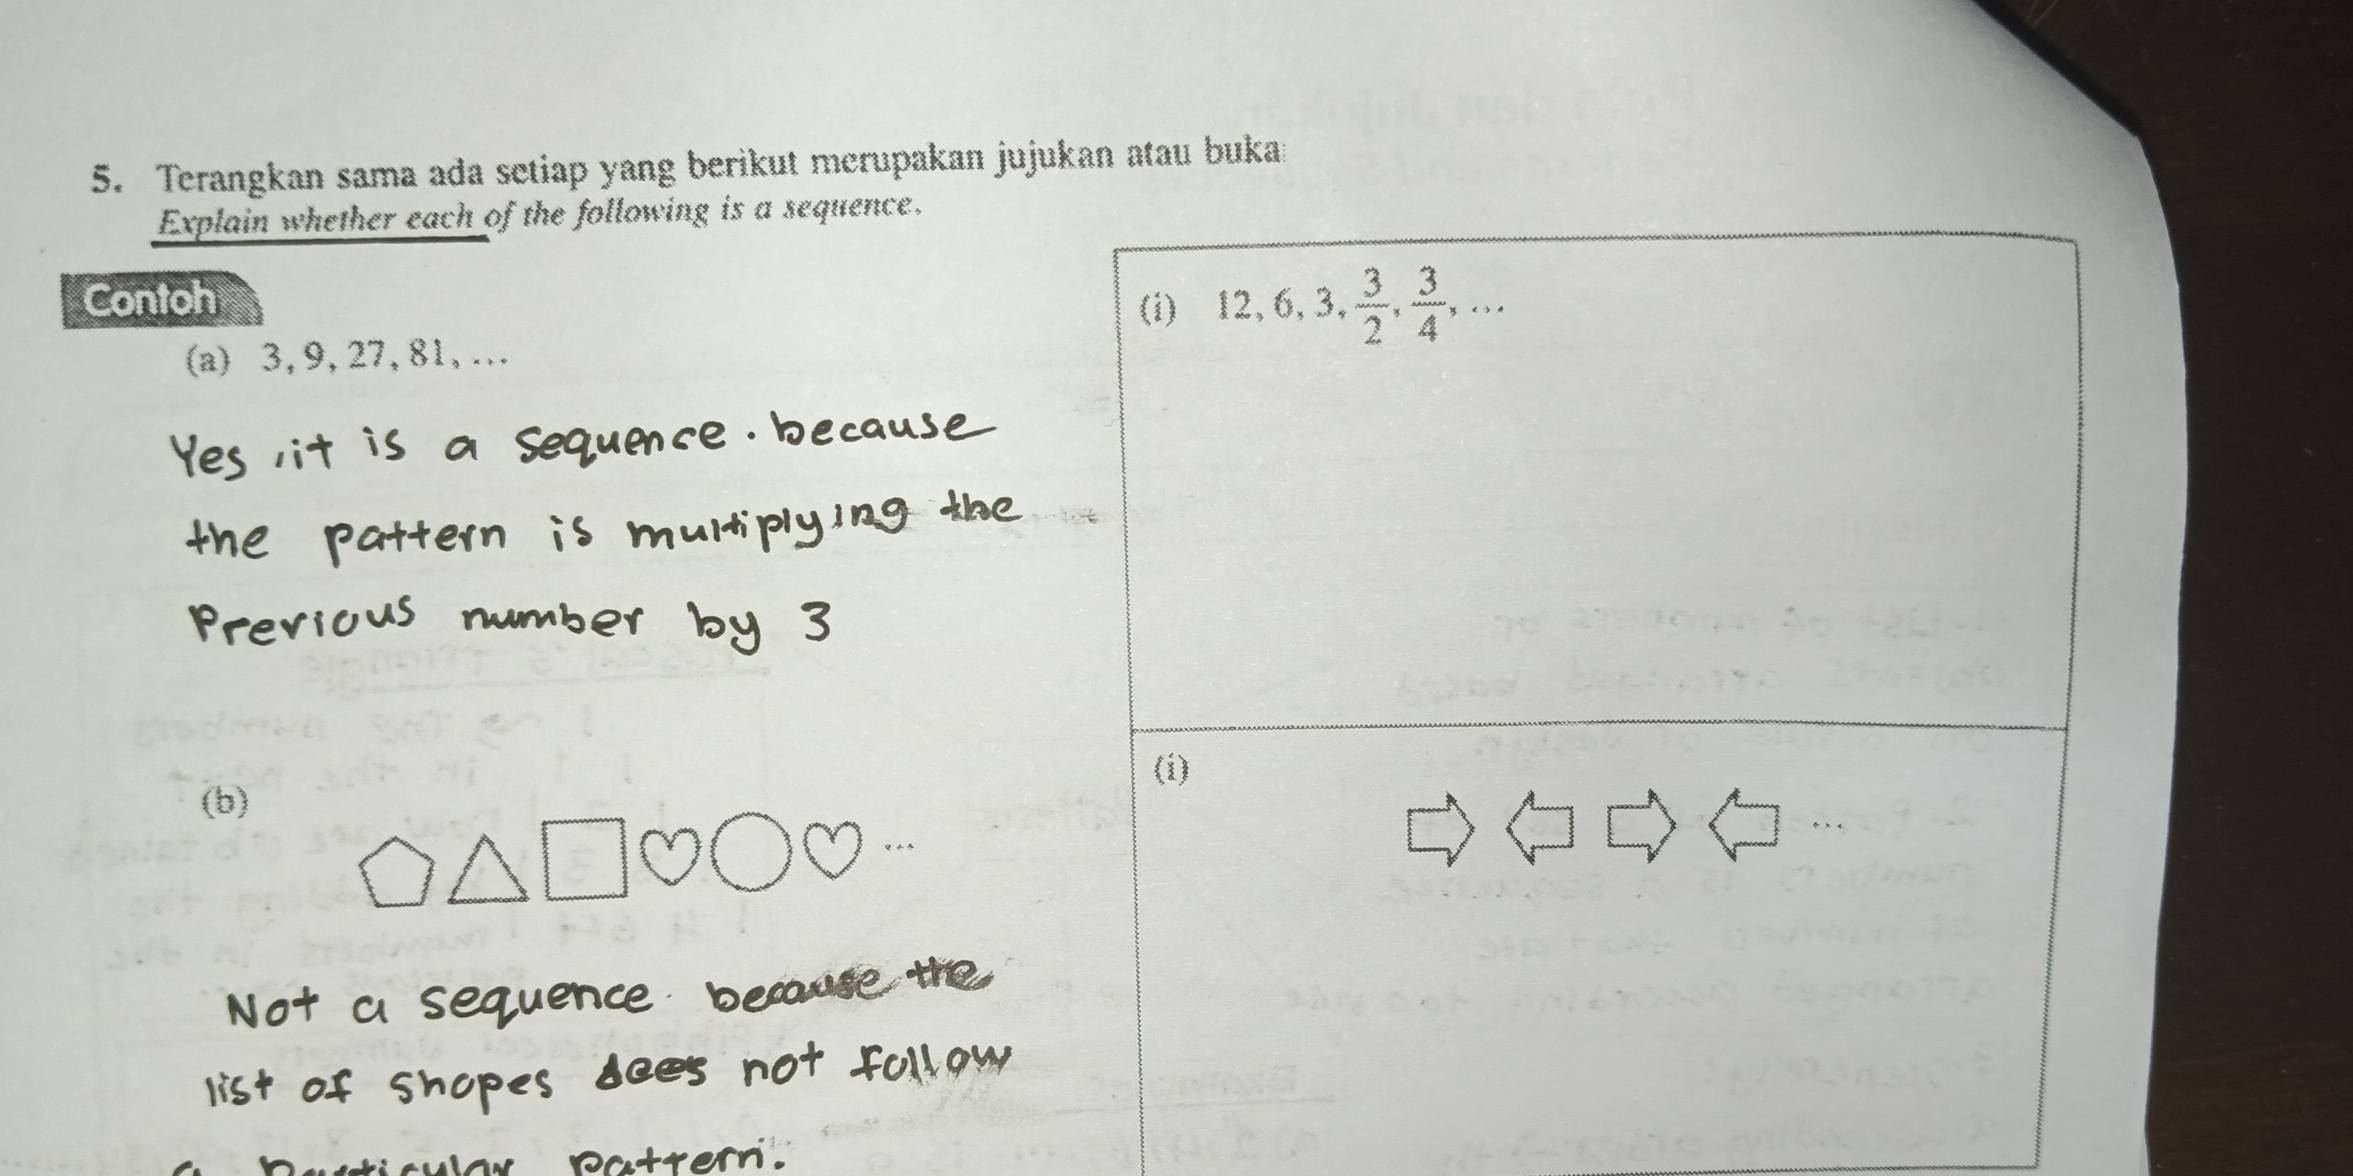 5. Terangkan sama ada setiap yang berikut merupakan jujukan atau buka
Explain whether each of the following is a sequence.
Contoh
(a) 3, 9, 27, 81, ...
Yes, it is a sequence. because
the pattern is multiplying the
Previous number by 3
(b)
...
Not a sequence because the
list of shapes does not follow
a particular pattern.
(i) 12, 6, 3, 3/2, 3/4, ...
(i)
...